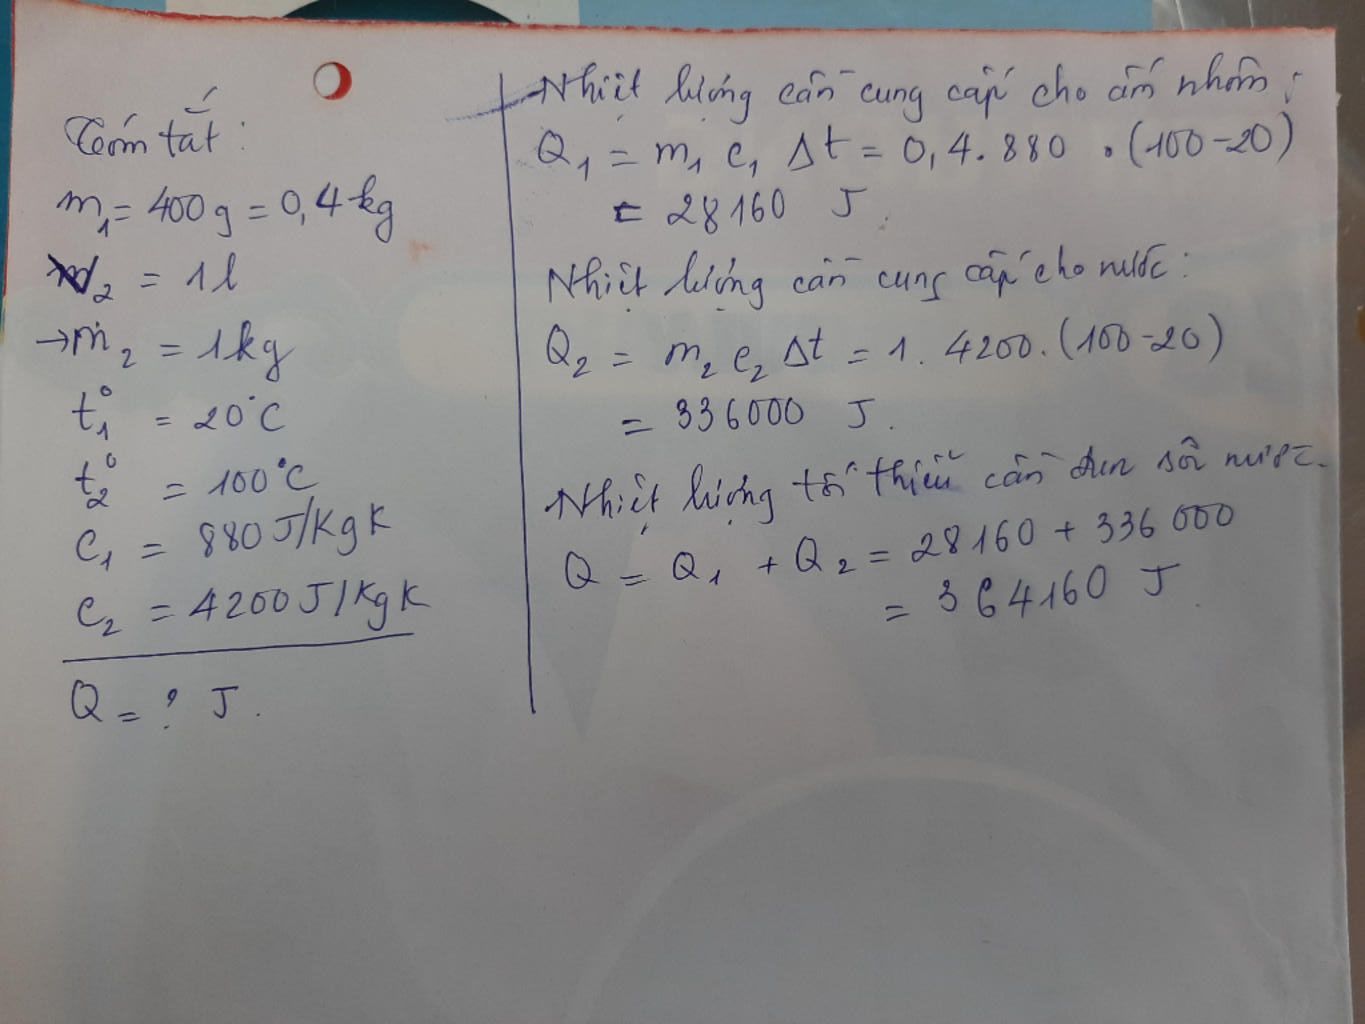 Tóm tắt:
m₁ = 400g = 0,4 kg
V₂ = 1l
→ m₂ = 1kg
t₁° = 20°C
t₂° = 100°C
C₁ = 880 J/KgK
C₂ = 4200 J/KgK
Q = ? J.
Nhiệt lượng cần cung cấp cho ấm nhôm:
Q₁ = m₁ c₁ Δt = 0,4.880 . (100-20)
= 28160 J.
Nhiệt lượng cần cung cấp cho nước:
Q₂ = m₂ c₂ Δt = 1. 4200. (100-20)
= 336000 J.
Nhiệt lượng tối thiểu cần đun sôi nước.
Q = Q₁ + Q₂ = 28160 + 336000
= 364160 J.